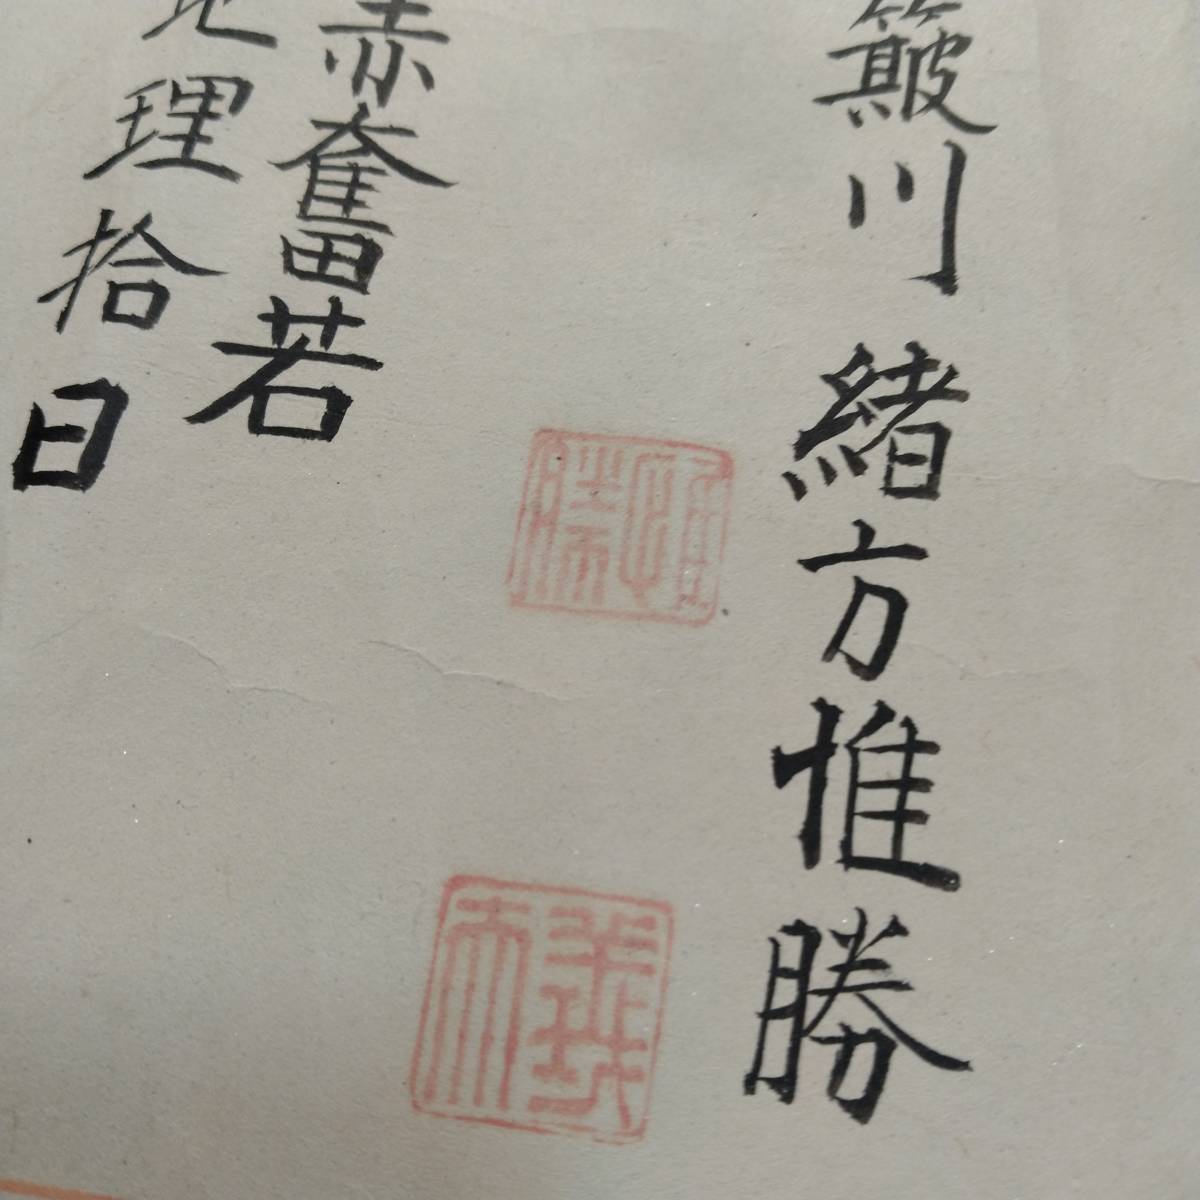 簸川 緒方惟勝
赤奮若
地理拾日
惟勝